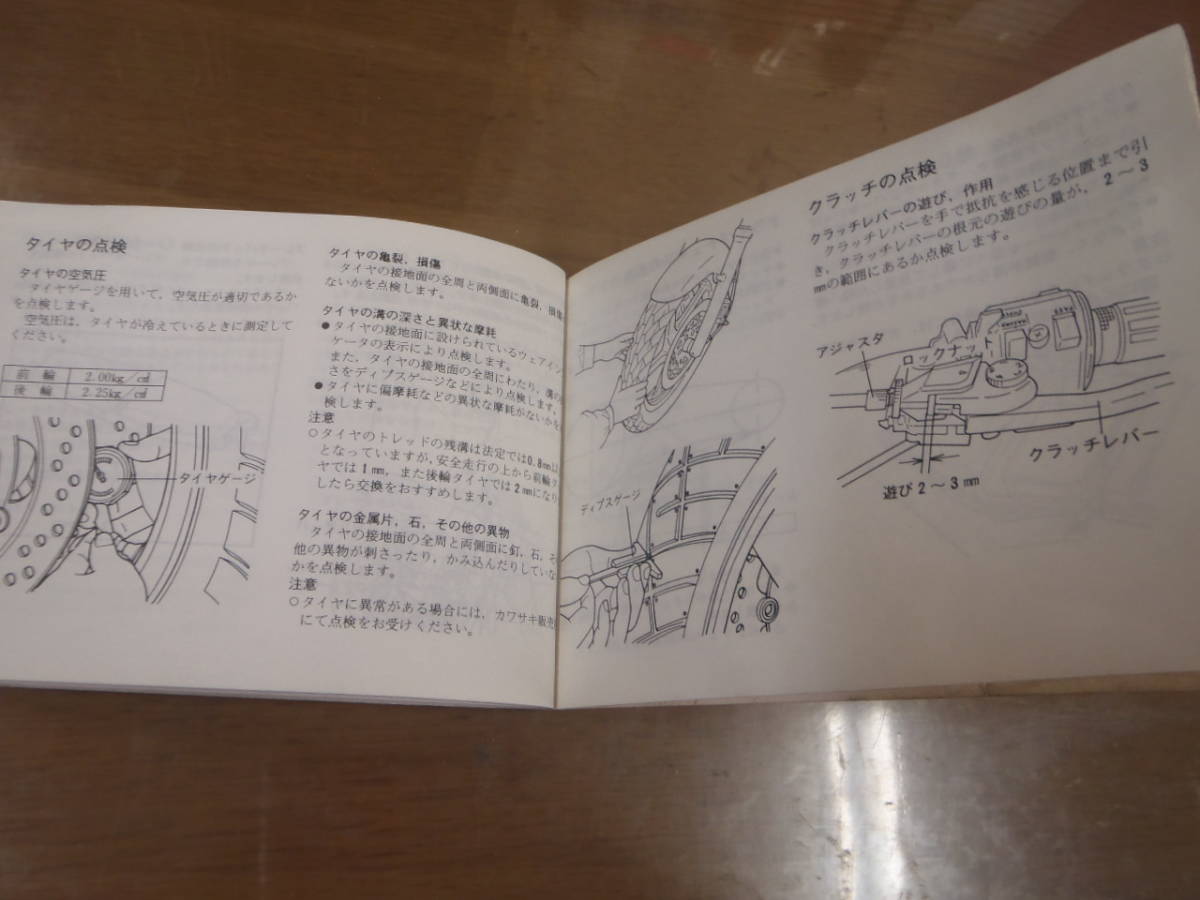 タイヤの点検
タイヤの空気圧
タイヤゲージを用いて，空気圧が適切であるか
を点検します。
空気圧は，タイヤが冷えているときに測定して
ください。
前 輪 2.00kg／c㎡
後 輪 2.25kg／c㎡
タイヤゲージ
タイヤの亀裂，損傷
タイヤの接地面の全周と両側面に亀裂，損傷
ないかを点検します。
タイヤの溝の深さと異状な摩耗
●タイヤの接地面に設けられているウェアイン
ケータの表示により点検します。
また，タイヤの接地面の全周にわたり，溝の
さをディプスゲージなどにより点検します，
●タイヤに偏摩耗などの異状な摩耗がないかを
検します。
注意
○タイヤのトレッドの残溝は法定では0.8mm以
となっていますが，安全走行の上から前輪
ヤでは1mm，また後輪タイヤでは2mmになり
したら交換をおすすめします。
タイヤの金属片，石，その他の異物
タイヤの接地面の全周と両側面に釘，石，そ
他の異物が刺さったり，かみ込んだりしていな
かを点検します。
注意
○タイヤに異常がある場合には，カワサキ販売
にて点検をお受けください。
ディプスゲージ
クラッチの点検
クラッチレバーの遊び，作用
クラッチレバーを手で抵抗を感じる位置まで引
き，クラッチレバーの根元の遊びの量が， 2～3
mmの範囲にあるか点検します。
アジャスタ
ロックナット
クラッチレバー
遊び2～3mm